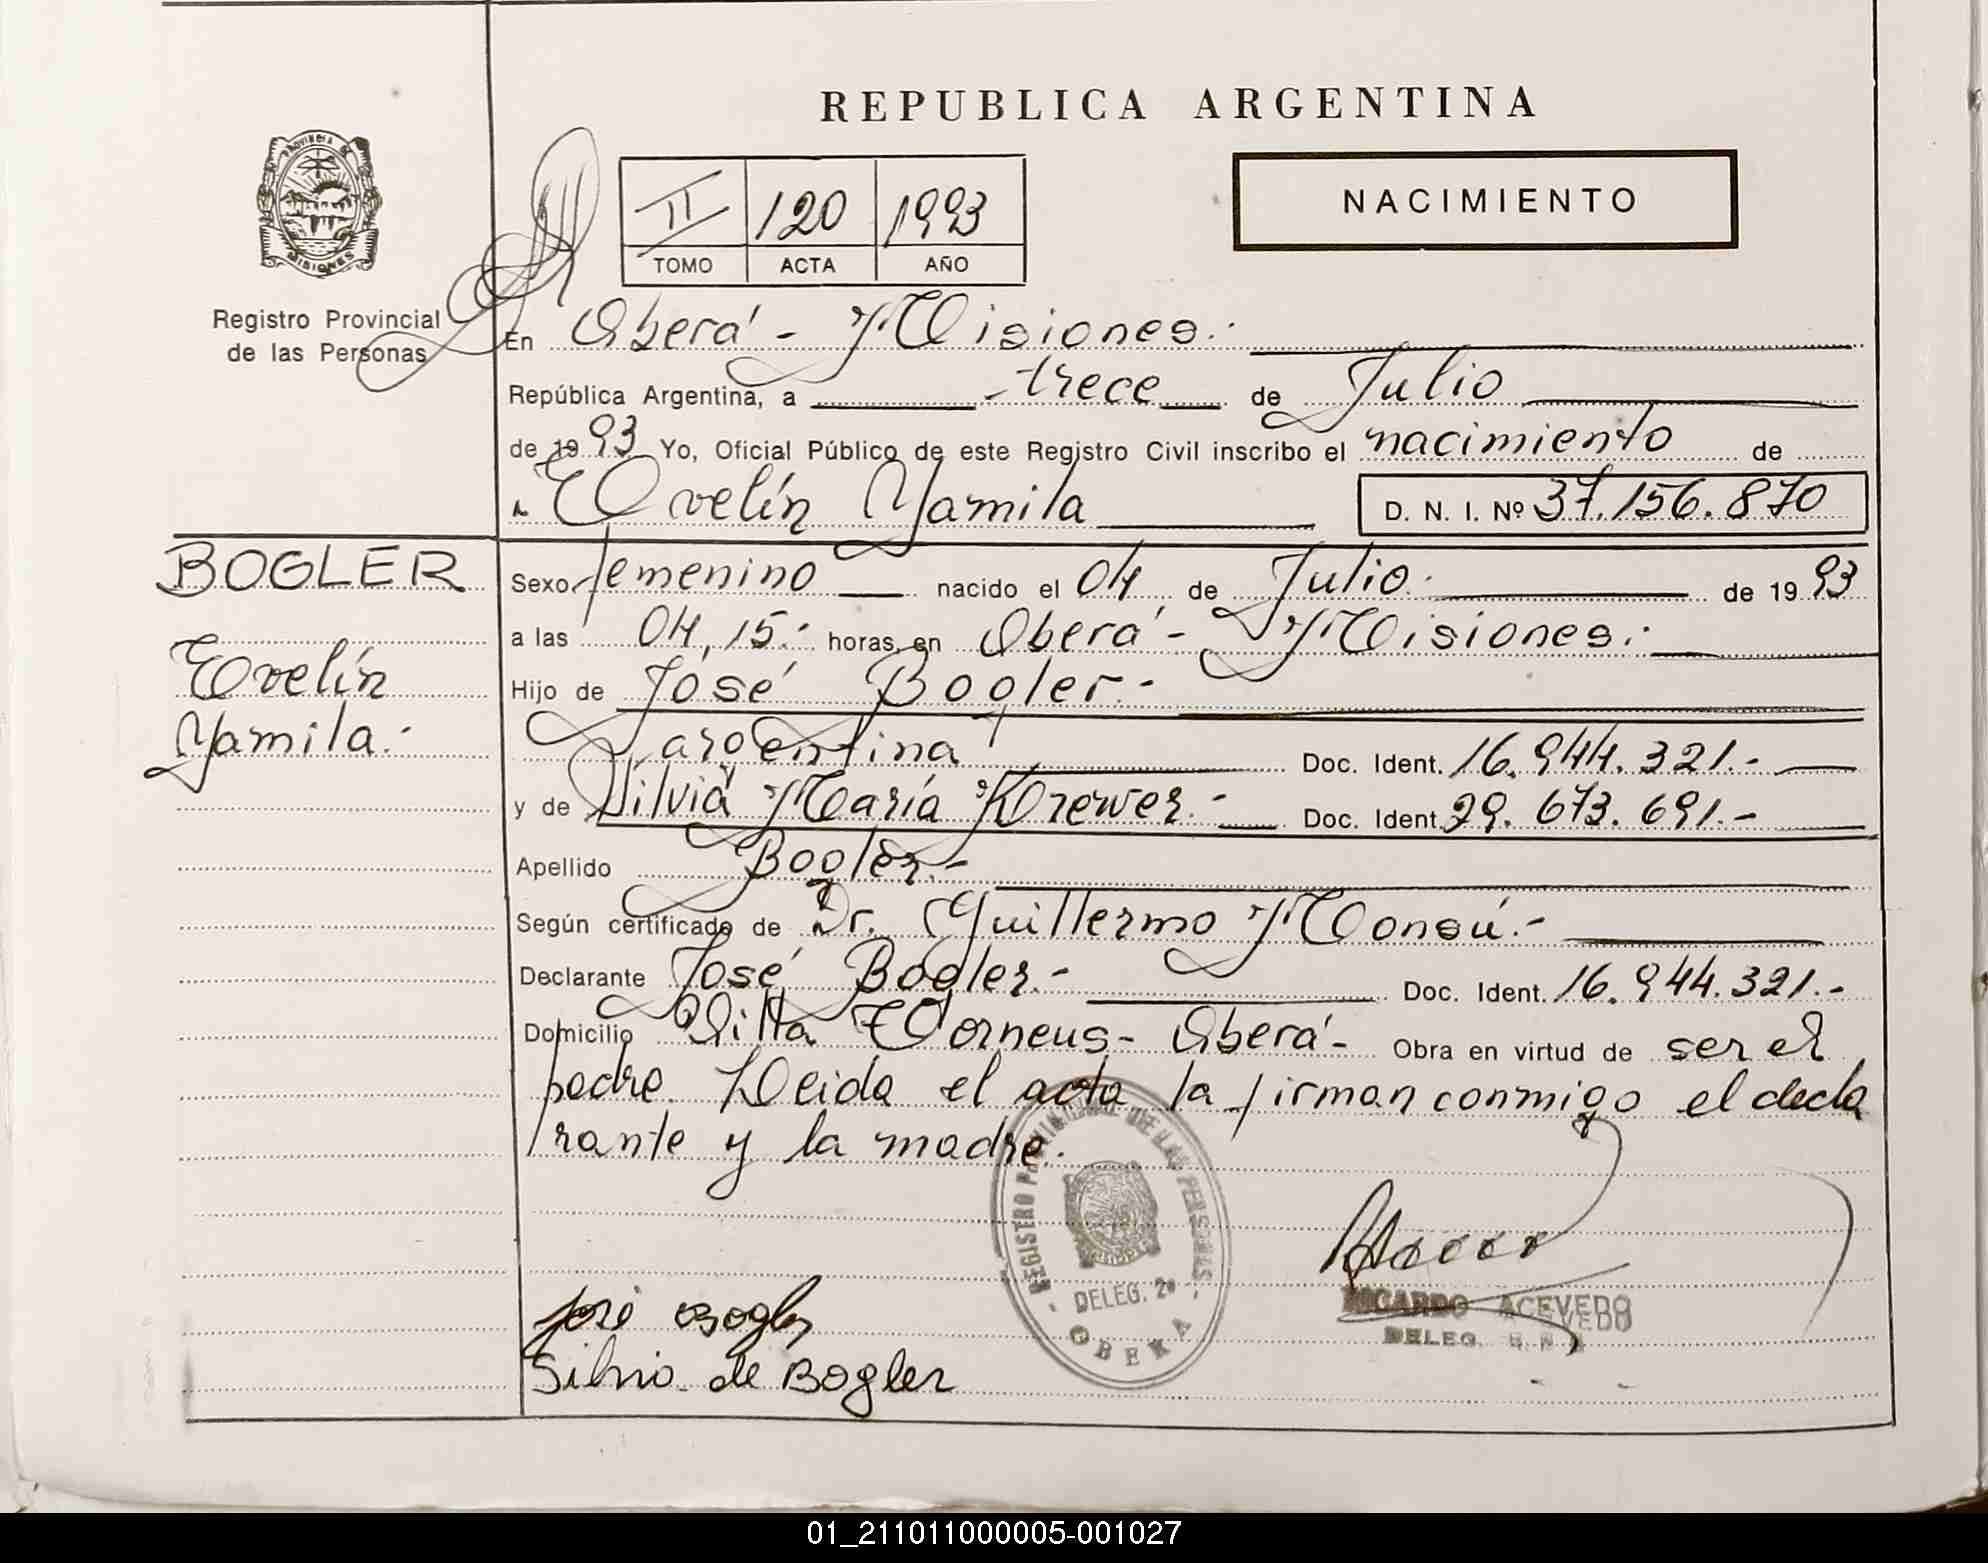 REPUBLICA ARGENTINA
PROVINCIA DE
MISIONES
Registro Provincial
de las Personas
II 120 1993
TOMO ACTA AÑO
NACIMIENTO
En Oberá - Misiones.-
República Argentina, a trece de Julio
de 1993 Yo, Oficial Público de este Registro Civil inscribo el nacimiento de
Evelín Yamila D. N. I. Nº 37.156.870
BOGLER
Evelín
Yamila.-
Sexo femenino nacido el 04 de Julio. de 1993
a las 04,15.- horas en Oberá - Misiones.-
Hijo de José Bogler.-
argentina Doc. Ident. 16.944.321.-
y de Silvia María Krewer.- Doc. Ident. 29.673.691.-
Apellido Bogler.-
Según certificado de Dr. Guillermo Monsú.-
Declarante José Bogler.- Doc. Ident. 16.944.321.-
Domicilio Villa Erneus - Oberá - Obra en virtud de ser el
padre. Leida el acta la firman conmigo el decla
rante y la madre.
REGISTRO PROVINCIAL DE LAS PERSONAS
DELEG. 2ª
OBERA
RICARDO ACEVEDO
DELEG.
José Bogler
Silvia de Bogler
01_211011000005-001027